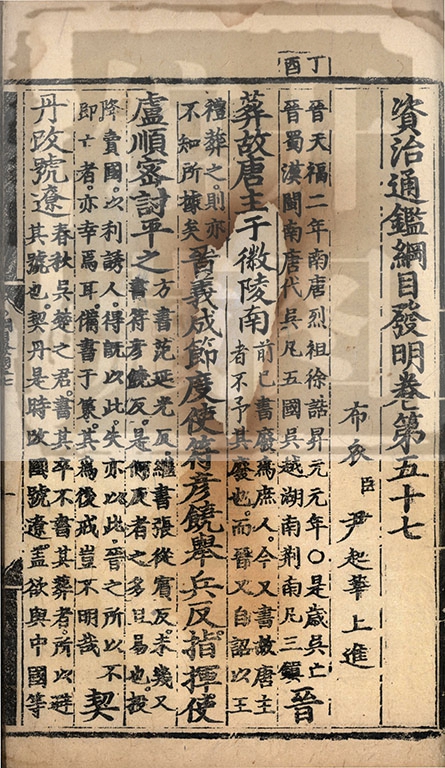 資治通鑑綱目發明卷第五十七
布衣臣尹起莘上進
丁酉
晉天福二年南唐烈祖徐誥昇元元年○是歲吳亡
晉蜀漢閩南唐代吳凡五國吳越湖南荆南凡三鎮
晉
葬故唐主于徽陵南
前已書廢爲庶人。今又書故唐主
者不予其廢也。而晉又自詔以王
禮葬之。則亦
不知所據矣
晉義成節度使符彥饒舉兵反。指揮使
盧順密討平之
方書范延光反。繼書張從賓反。未幾又
書符彥饒反。是何反者之多且易也。投
降賣國。以利誘人。得旣以此。失亦以此。晉之所以不
即亡者。亦幸焉耳。備書于策。其爲後戒豈不明哉
契
丹改號遼
春秋吳楚之君。書其卒不書其葬者。所以辟
其號也。契丹是時改國號遼。蓋欲與中國等